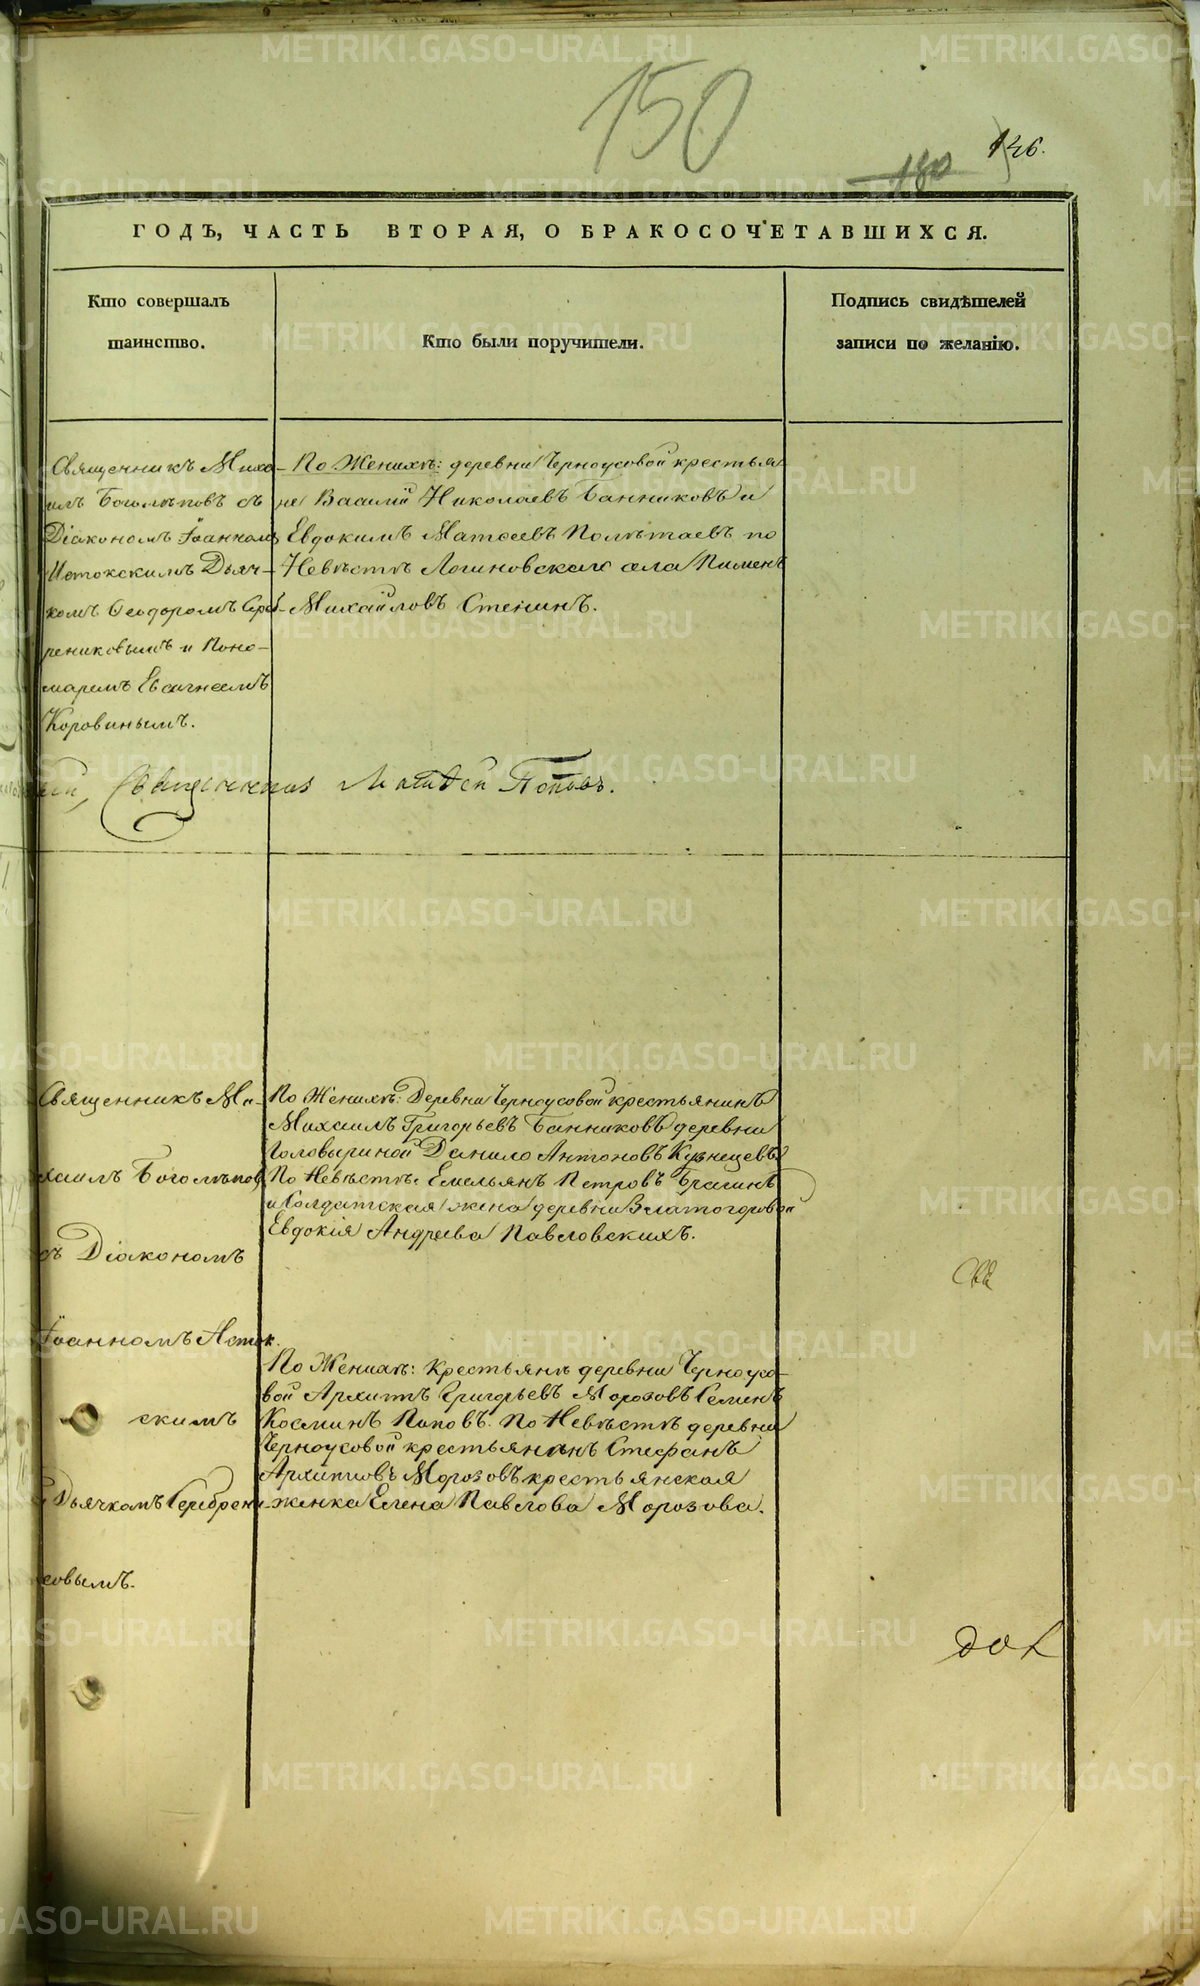 150
180
126.
ГОДЪ, ЧАСТЬ ВТОРАЯ, О БРАКОСОЧЕТАВШИХСЯ.
Кто совершалъ
таинство.
Кто были поручители.
Подпись свидѣтелей
записи по желанію.
Священникъ Миха-
илъ Боголѣповъ съ
Діакономъ Іоанномъ
Истокскимъ Дьяч-
комъ Ѳеодоромъ Сереб-
рениковымъ и Поно-
маремъ Евгенѣемъ
Коровинымъ.
По Женихѣ: деревни Черноусовой крестья-
не Василій Николаевъ Банниковъ и
Евдокимъ Матѳеевъ Полѣтаевъ по
Невѣстѣ Логиновскаго села Пименъ
Михайловъ Стенинъ.
Священникъ Матвей Поповъ.
Священникъ Ми-
хаилъ Боголѣповъ
съ Діакономъ
Іоанномъ Исток-
скимъ
и Дьячкомъ Серебрени-
ковымъ.
По Женихѣ: Деревни Черноусовой крестьянинъ
Михаилъ Григорьевъ Банниковъ деревни
Головыриной Данило Антоновъ Кузнецевъ
По Невѣстѣ: Емельянъ Петровъ Брагинъ
и Солдатская жена деревни Златогоровой
Евдокія Андреева Павловскихъ.
По Женихѣ: Крестьянъ деревни Черноусо-
вой Архипъ Григорьевъ Морозовъ Семенъ
Косминъ Поповъ. По Невѣстѣ деревни
Черноусовой крестьянинъ Стефанъ
Архиповъ Морозовъ крестьянская
женка Елена Павлова Морозова.
METRIKI.GASO-URAL.RU